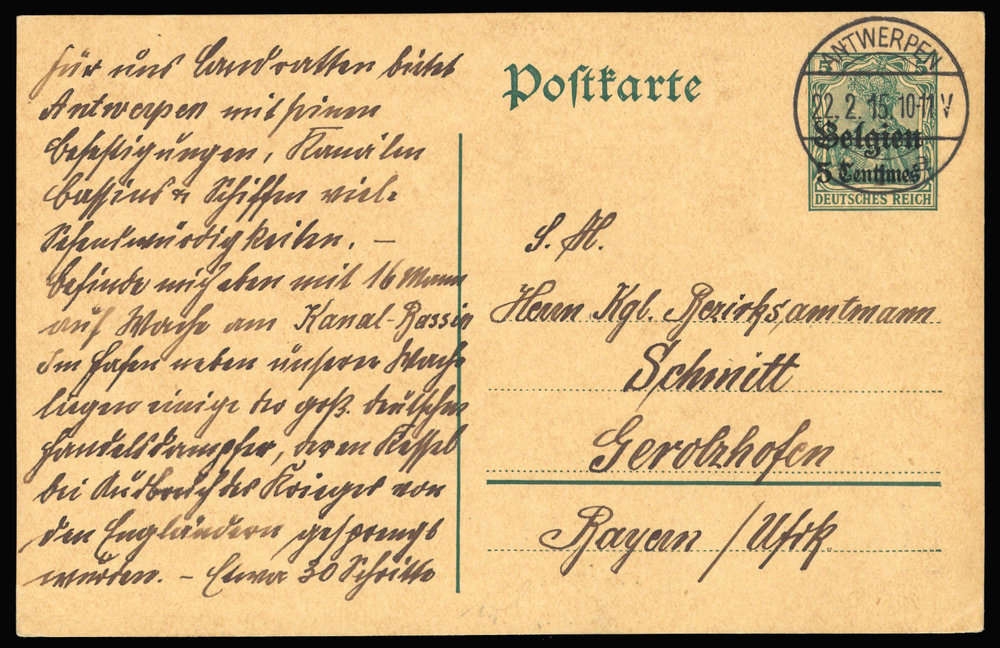 Für uns Landratten bietet
Antwerpen mit seinen
Befestigungen, Kanälen
Bassins & Schiffen viele
Sehenswürdigkeiten. –
Befinde mich eben mit 16 Mann
auf Wache am Kanal-Bassin
Im Hafen neben unserer Wache
liegen einige der groß. deutschen
Handelsdampfer, deren Kessel
bei Ausbruch des Krieges von
den Engländern gesprengt
wurden. – Etwa 30 Schritte
Postkarte
ANTWERPEN
22.2.15.10-11V
Belgien
5 Centimes
DEUTSCHES REICH
S. H.
Herrn Kgl. Bezirksamtmann
Schmitt
Gerolzhofen
Bayern / Ufrk.